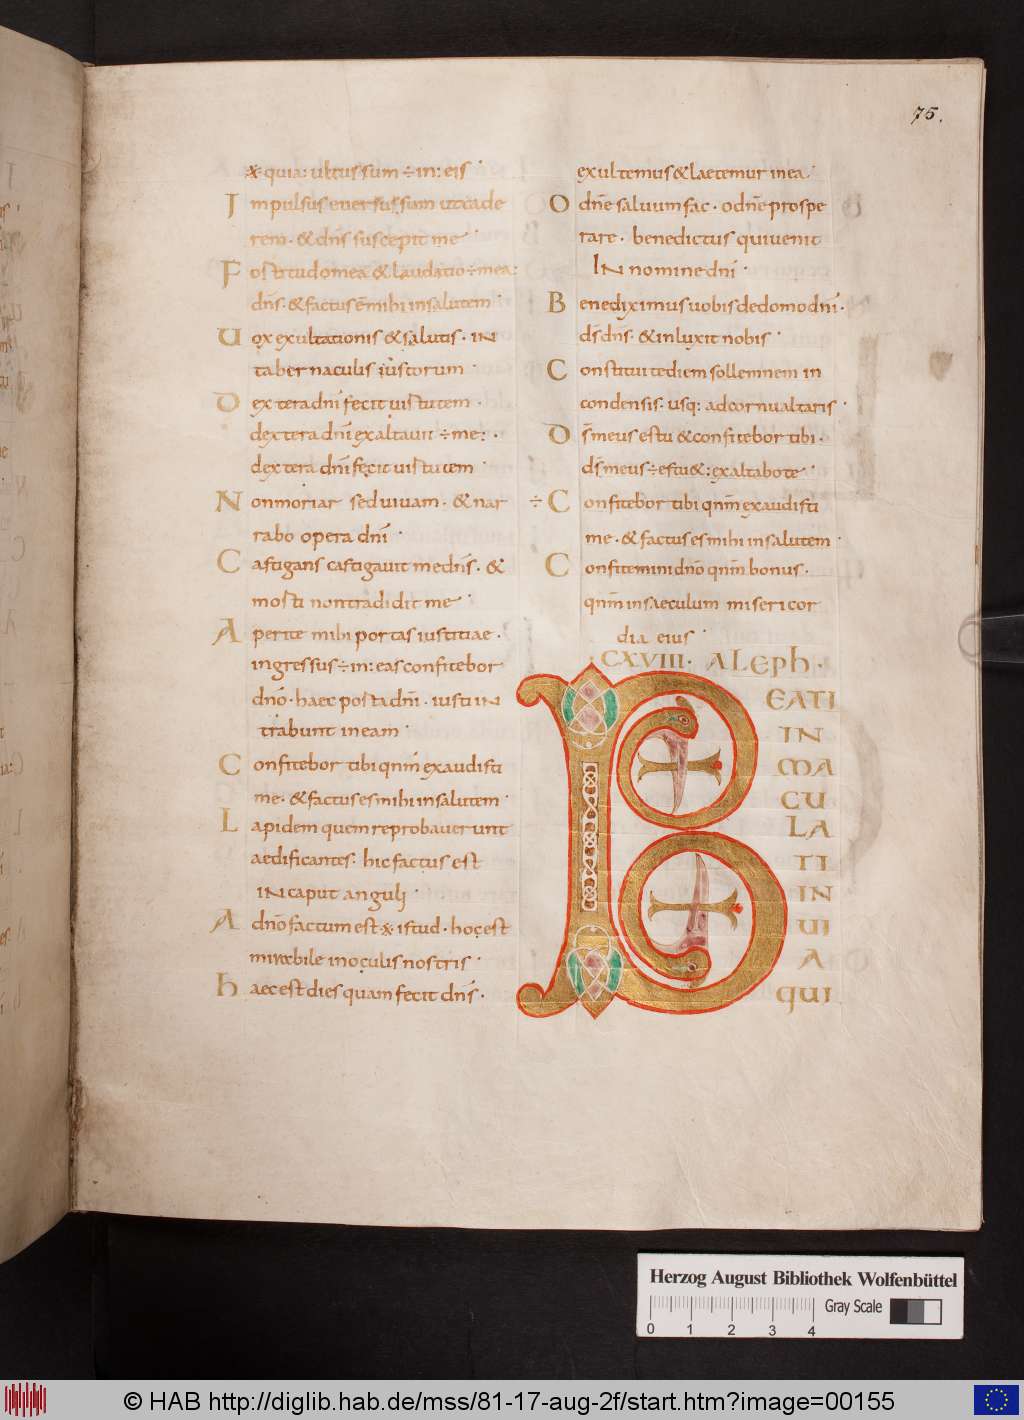 75.
※ quia: ultus sum ÷ in: eis
Impulsus eversus sum ut cade
rem. & dn̄s suscepit me
Fortitudo mea & laudatio ÷ mea:
dn̄s. & factus ē mihi in salutem
Uox exultationis & salutis. in
tabernaculis iustorum
Dextera dn̄i fecit uirtutem.
dextera dn̄i exaltauit ÷ me:.
dextera dn̄i fecit uirtutem
Non moriar sed uiuam. & nar
rabo opera dn̄i
Castigans castigauit me dn̄s. &
morti non tradidit me
Aperite mihi portas iustitiae.
ingressus ÷ in: eas confitebor
dn̄o. haec porta dn̄i. iusti in
trabunt in eam
Confitebor tibi qnm̄ exaudisti
me. & factus es mihi in salutem
Lapidem quem reprobauerunt
aedificantes. hic factus est
in caput anguli
A dn̄o factum est ※ istud. hoc est
mirabile in oculis nostris
haec est dies quam fecit dn̄s.
exultemus & laetemur in ea.
O dn̄e saluum fac. o dn̄e prospe
rare. benedictus qui uenit
In nomine dn̄i
Benediximus uobis de domo dn̄i.
ds̄ dn̄s. & inluxit nobis
Constituite diem sollemnem in
condensis. usq: ad cornu altaris
Ds̄ meus es tu & confitebor tibi.
ds̄ meus ÷ es tu &: exaltabo te
÷ Confitebor tibi qnm̄ exaudisti
me. & factus es mihi in salutem
Confitemini dn̄o qnm̄ bonus.
qnm̄ in saeculum misericor
dia eius
CXVIII. ALEph.
BEATI
IN
MA
CU
LA
TI
IN
UI
A
QUI
Herzog August Bibliothek Wolfenbüttel
Gray Scale
0 1 2 3 4
© HAB http://diglib.hab.de/mss/81-17-aug-2f/start.htm?image=00155